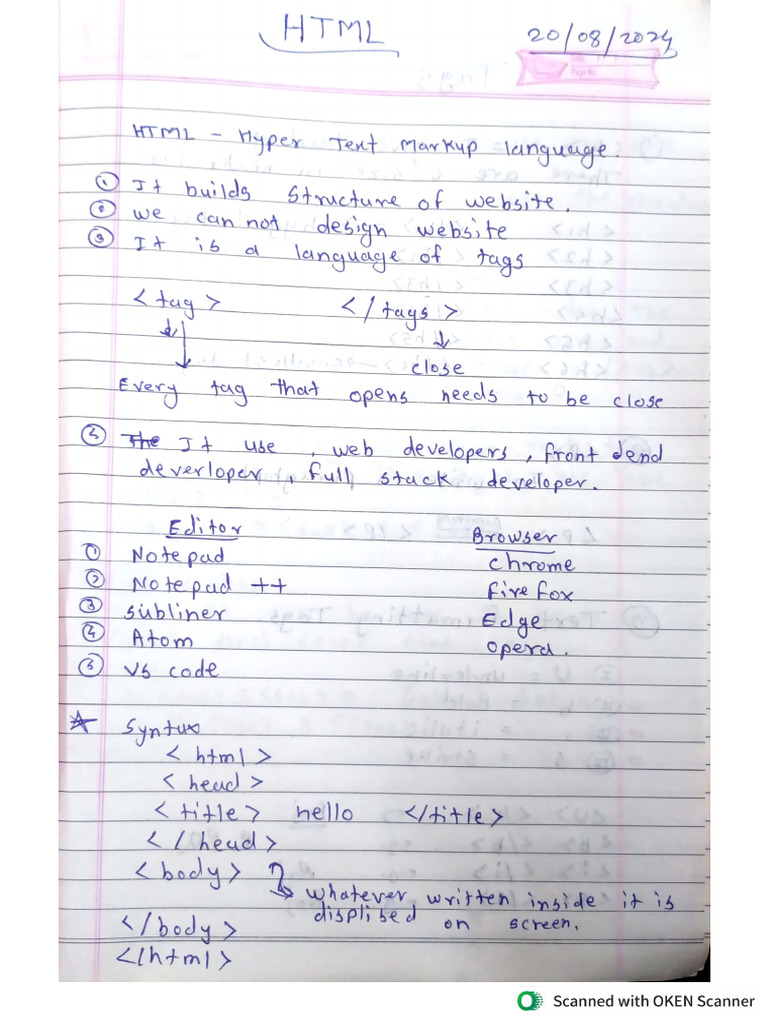 HTML
20/08/2024
HTML - Hyper Text Markup language.
① It builds structure of website.
② we can not design website
③ It is a language of tags
<tag> </tags>
close
Every tag that opens needs to be close
⑤ The It use, web developers, front dend
deverloper, full stack developer.
Editor Browser
① Notepad chrome
② Notepad ++ firefox
③ subliner Edge
④ Atom opera.
⑤ vs code
☆ Syntux
<html>
<head>
<title> hello </title>
</head>
<body>
whatever written inside it is
displised on screen.
</body>
</html>
Scanned with OKEN Scanner